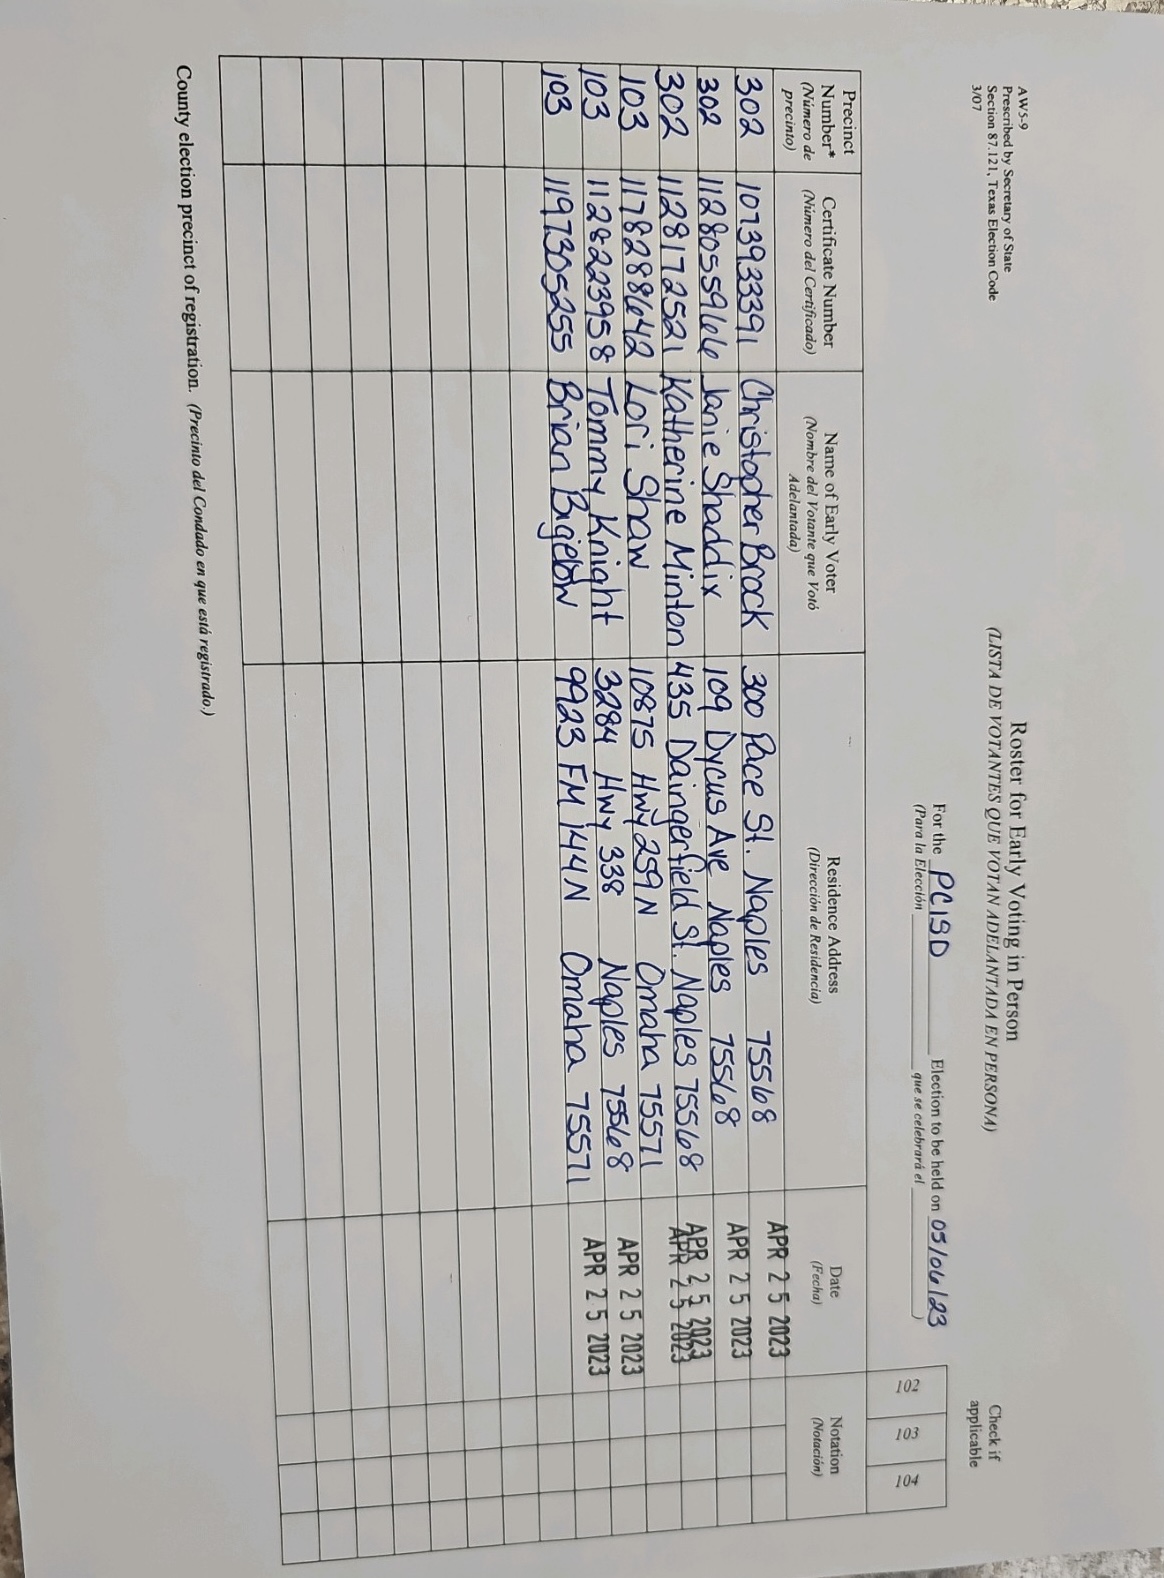 AW5-9
Prescribed by Secretary of State
Section 87.121, Texas Election Code
3/07
Roster for Early Voting in Person
(LISTA DE VOTANTES QUE VOTAN ADELANTADA EN PERSONA)
For the PCISD Election to be held on 05/06/23
(Para la Elección que se celebrará el )
Check if
applicable
102 103 104
Precinct Number* (Número de precinto) Certificate Number (Número del Certificado) Name of Early Voter (Nombre del Votante que Votó Adelantada) Residence Address (Dirección de Residencia) Date (Fecha) Notation (Notación)
302 1073933391 Christopher Brock 300 Pace St. Naples 75568 APR 25 2023
302 1128055966 Janie Shaddix 109 Dycus Ave Naples 75568 APR 25 2023
302 1128172521 Katherine Minton 435 Daingerfield St. Naples 75568 APR 25 2023 APR 25 2023
103 1178288642 Lori Shaw 10875 Hwy 259 N Omaha 75571 APR 25 2023
103 1128223958 Tommy Knight 3284 Hwy 338 Naples 75568 APR 25 2023
103 1197305255 Brian Bigelow 9923 FM 144 N Omaha 75571
County election precinct of registration. (Precinto del Condado en que está registrado.)